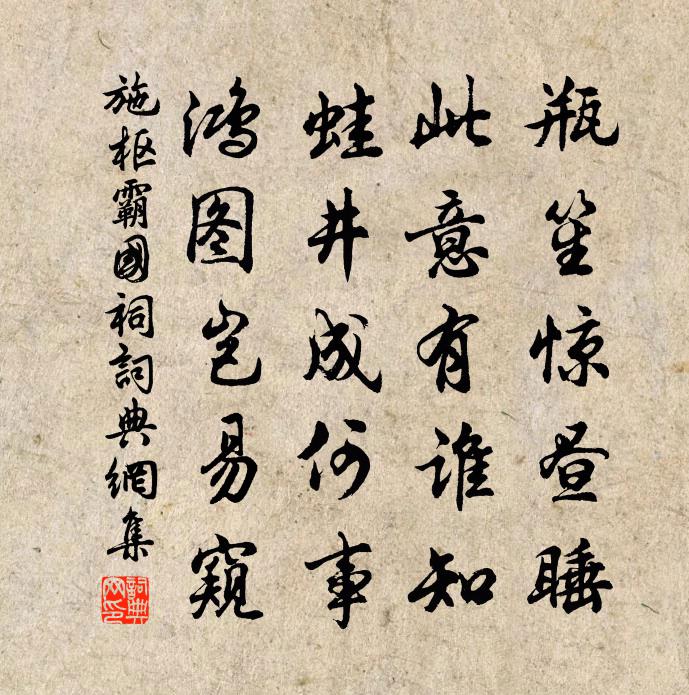 瓶笙惊昼睡
此意有谁知
蛙井成何事
鸿图岂易窥
施枢霸國祠詞典網集
詞典
网印